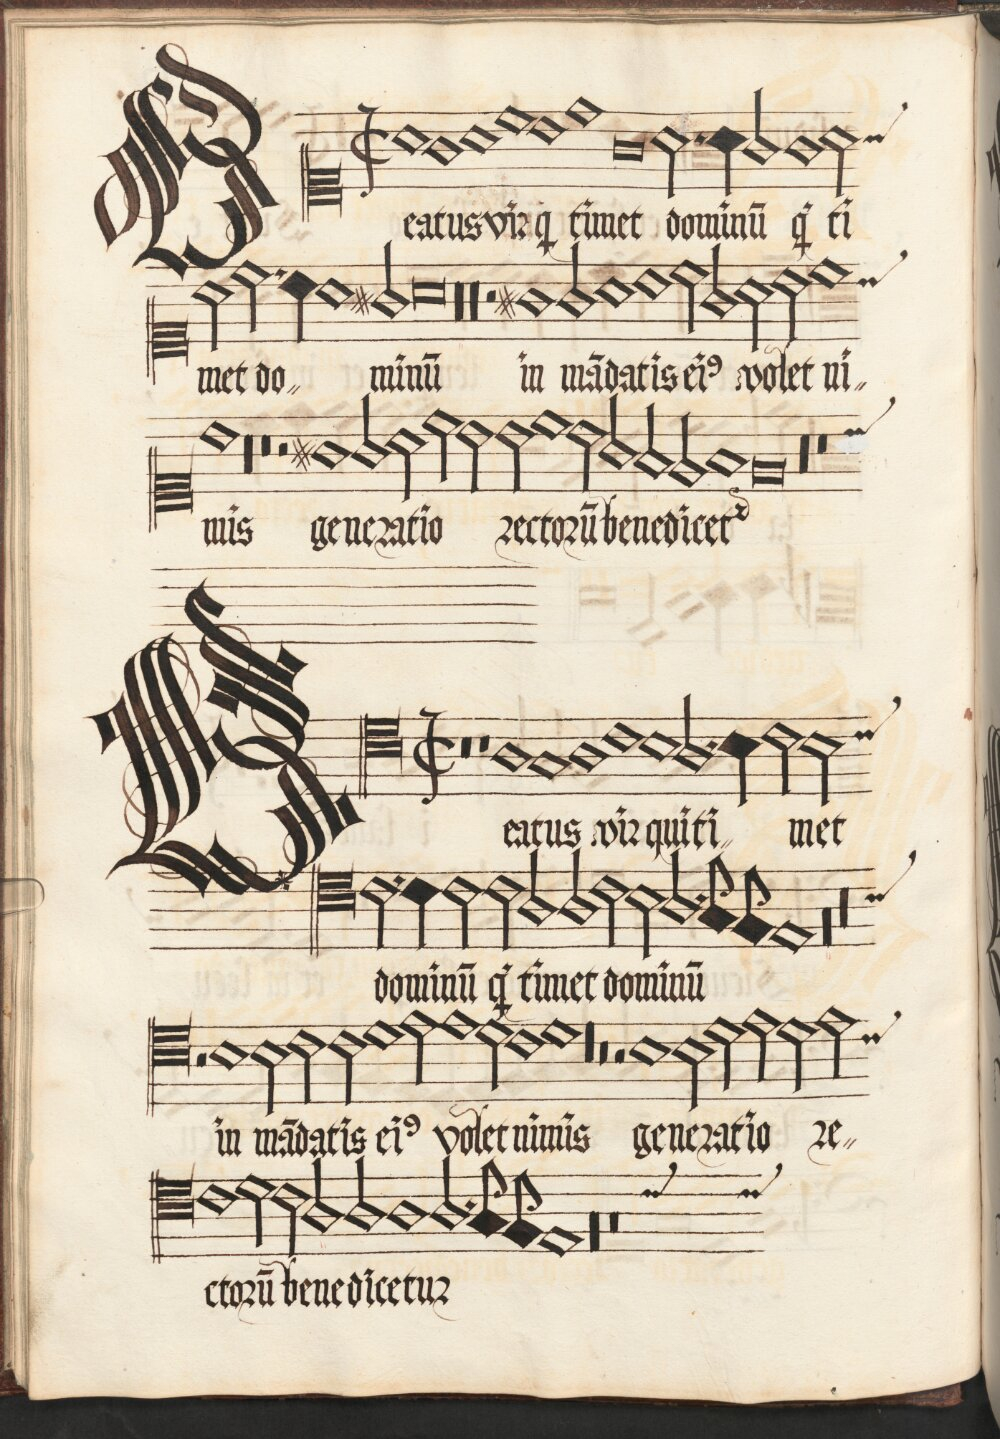 Beatus vir q̄ timet dominū q̄ ti
met do〃 minū in mādatis eiꝰ volet ni〃
mis generatio rectorū benedicetᷣ
Beatus vir qui ti〃 met
dominū q̄ timet dominū
in mādatis eiꝰ volet nimis generatio re〃
ctorū benedicetur